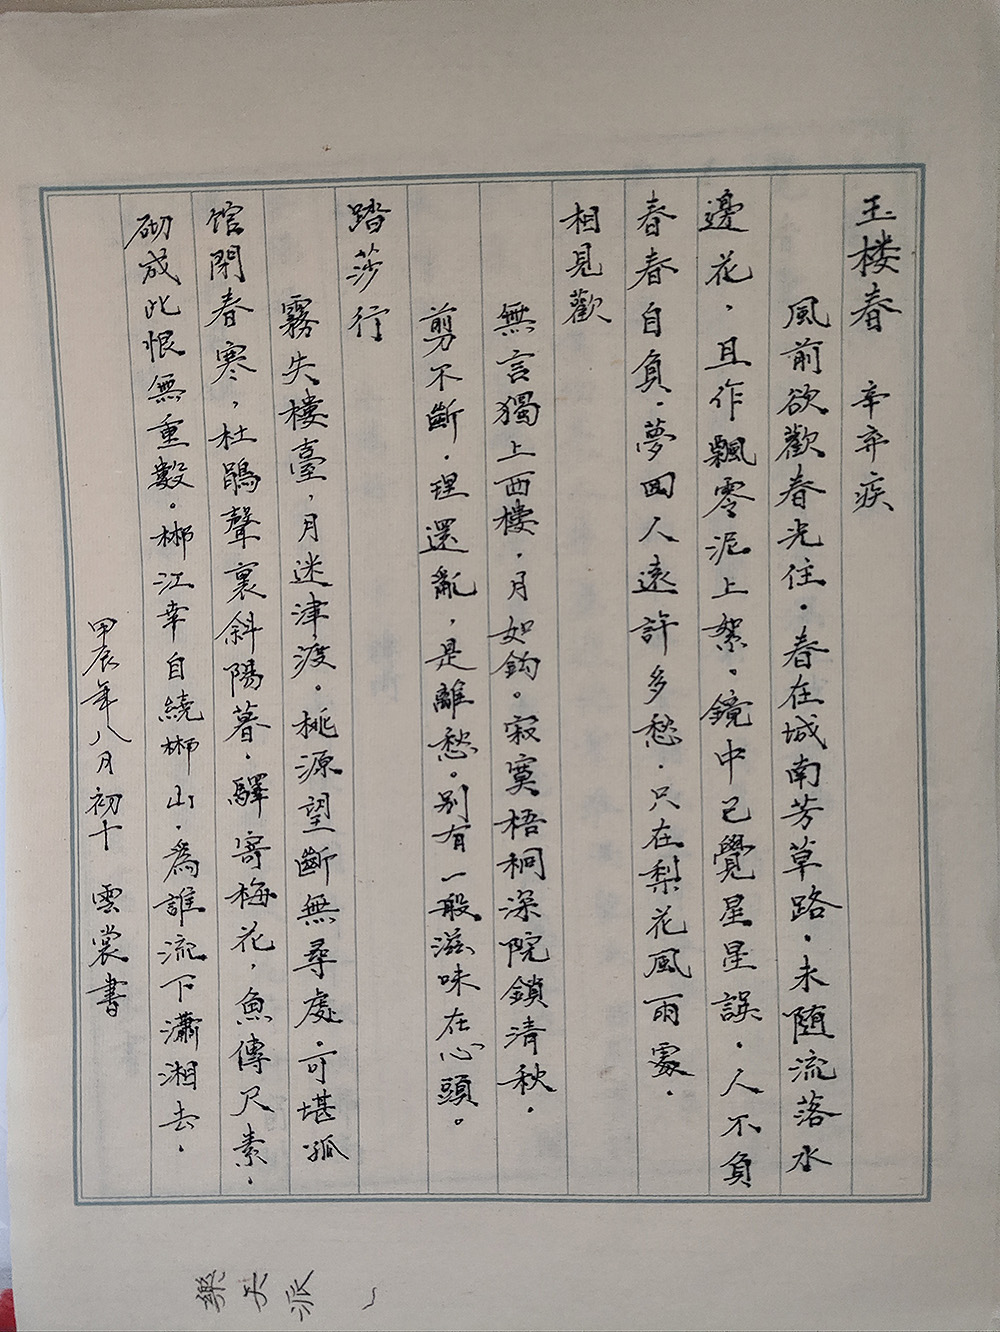 玉楼春　辛弃疾
風前欲歡春光住．春在城南芳草路．未随流落水
邊花，且作飄零泥上絮。鏡中已覺星星誤．人不負
春春自負．夢回人遠許多愁．只在梨花風雨處．
相見歡
無言獨上西樓．月如鈎。寂寞梧桐深院鎖清秋．
剪不斷．理還亂，是離愁。别有一般滋味在心頭。
踏莎行
霧失樓臺，月迷津渡。桃源望斷無尋處。可堪孤
馆閉春寒，杜鵑聲裏斜陽暮．驛寄梅花，魚傳尺素．
砌成此恨無重數。郴江幸自繞郴山．為誰流下瀟湘去．
甲辰年八月初十　雲裳書
樂天派